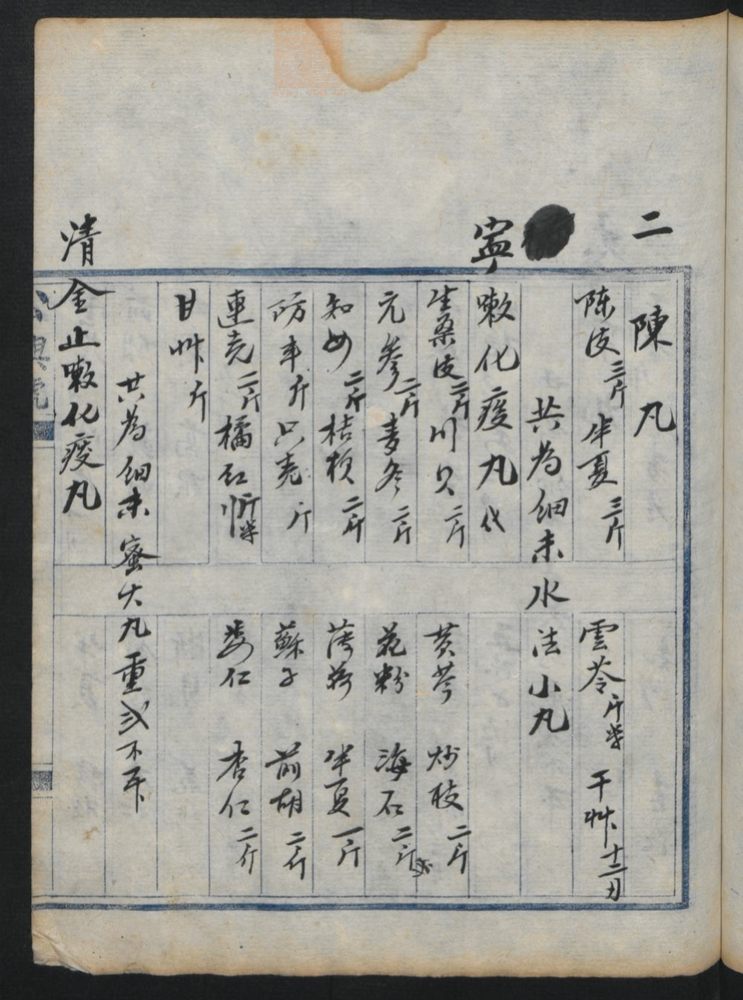 二陳丸
陈皮三斤 半夏三斤 雲苓斤半 干艸十二刃
共为细末水法小丸
寧嗽化痰丸代
生桑皮二斤 川贝二斤 黄芩 炒枝二斤
元参二斤 麦冬二斤 花粉 海石二斤
知母二斤 桔梗二斤 薄荷 半夏一斤
防丰斤 只壳斤 蘇子 前胡二斤
連壳二斤 橘红斤半 蒌仁 杏仁二斤
甘艸斤
共为细末蜜大丸重弍不
清金止嗽化痰丸